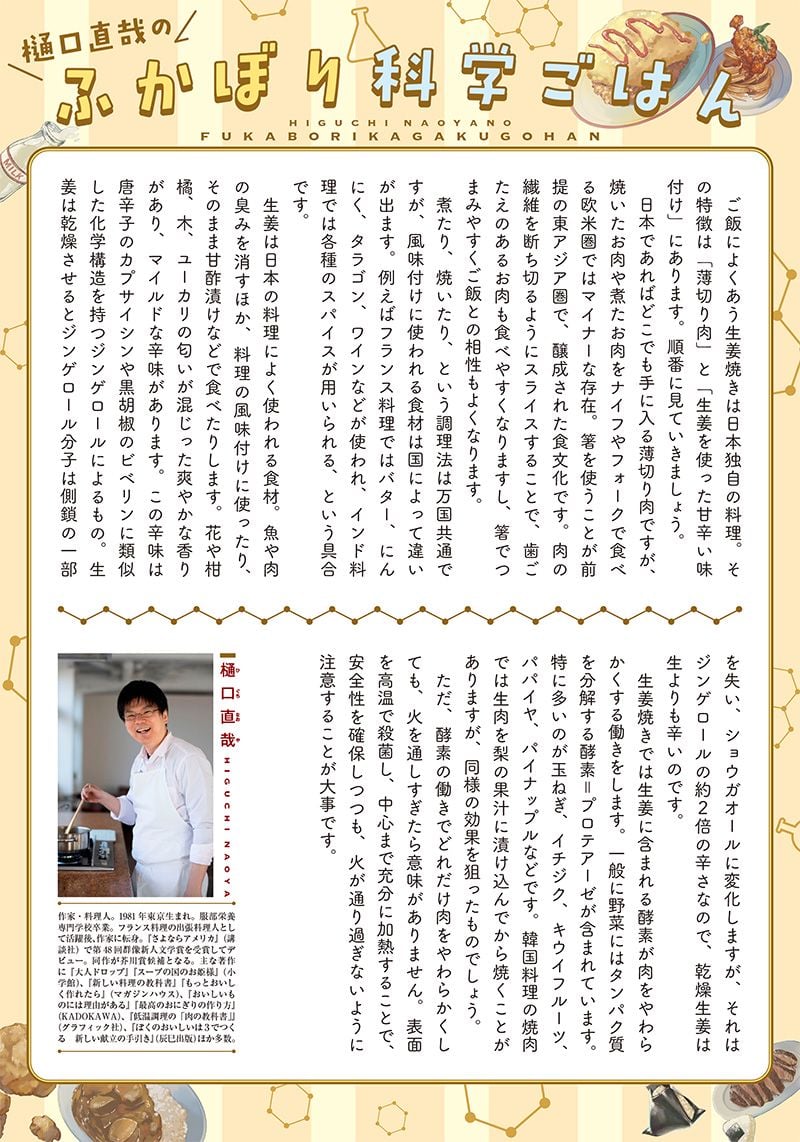 樋口直哉の
ふかぼり科学ごはん
HIGUCHI NAOYANO
FUKABORIKAGAKUGOHAN
ご飯によくあう生姜焼きは日本独自の料理。そ
の特徴は「薄切り肉」と「生姜を使った甘辛い味
付け」にあります。順番に見ていきましょう。
日本であればどこでも手に入る薄切り肉ですが、
焼いたお肉や煮たお肉をナイフやフォークで食べ
る欧米圏ではマイナーな存在。箸を使うことが前
提の東アジア圏で、醸成された食文化です。肉の
繊維を断ち切るようにスライスすることで、歯ご
たえのあるお肉も食べやすくなりますし、箸でつ
まみやすくご飯との相性もよくなります。
煮たり、焼いたり、という調理法は万国共通で
すが、風味付けに使われる食材は国によって違い
が出ます。例えばフランス料理ではバター、にん
にく、タラゴン、ワインなどが使われ、インド料
理では各種のスパイスが用いられる、という具合
です。
生姜は日本の料理によく使われる食材。魚や肉
の臭みを消すほか、料理の風味付けに使ったり、
そのまま甘酢漬けなどで食べたりします。花や柑
橘、木、ユーカリの匂いが混じった爽やかな香り
があり、マイルドな辛味があります。この辛味は
唐辛子のカプサイシンや黒胡椒のピペリンに類似
した化学構造を持つジンゲロールによるもの。生
姜は乾燥させるとジンゲロール分子は側鎖の一部
を失い、ショウガオールに変化しますが、それは
ジンゲロールの約2倍の辛さなので、乾燥生姜は
生よりも辛いのです。
生姜焼きでは生姜に含まれる酵素が肉をやわら
かくする働きをします。一般に野菜にはタンパク質
を分解する酵素=プロテアーゼが含まれています。
特に多いのが玉ねぎ、イチジク、キウイフルーツ、
パパイヤ、パイナップルなどです。韓国料理の焼肉
では生肉を梨の果汁に漬け込んでから焼くことが
ありますが、同様の効果を狙ったものでしょう。
ただ、酵素の働きでどれだけ肉をやわらかくし
ても、火を通しすぎたら意味がありません。表面
を高温で殺菌し、中心まで充分に加熱することで、
安全性を確保しつつも、火が通り過ぎないように
注意することが大事です。
樋口直哉
ひぐちなおや
HIGUCHI NAOYA
作家・料理人。1981年東京生まれ。服部栄養
専門学校卒業。フランス料理の出張料理人とし
て活躍後、作家に転身。『さよならアメリカ』(講
談社)で第48回群像新人文学賞を受賞してデ
ビュー。同作が芥川賞候補となる。主な著作
に『大人ドロップ』『スープの国のお姫様』(小
学館)、『新しい料理の教科書』『もっとおいし
く作れたら』(マガジンハウス)、『おいしいも
のには理由がある』『最高のおにぎりの作り方』
(KADOKAWA)、『低温調理の「肉の教科書」』
(グラフィック社)、『ぼくのおいしいは3でつく
る 新しい献立の手引き』(辰巳出版)ほか多数。
MILK